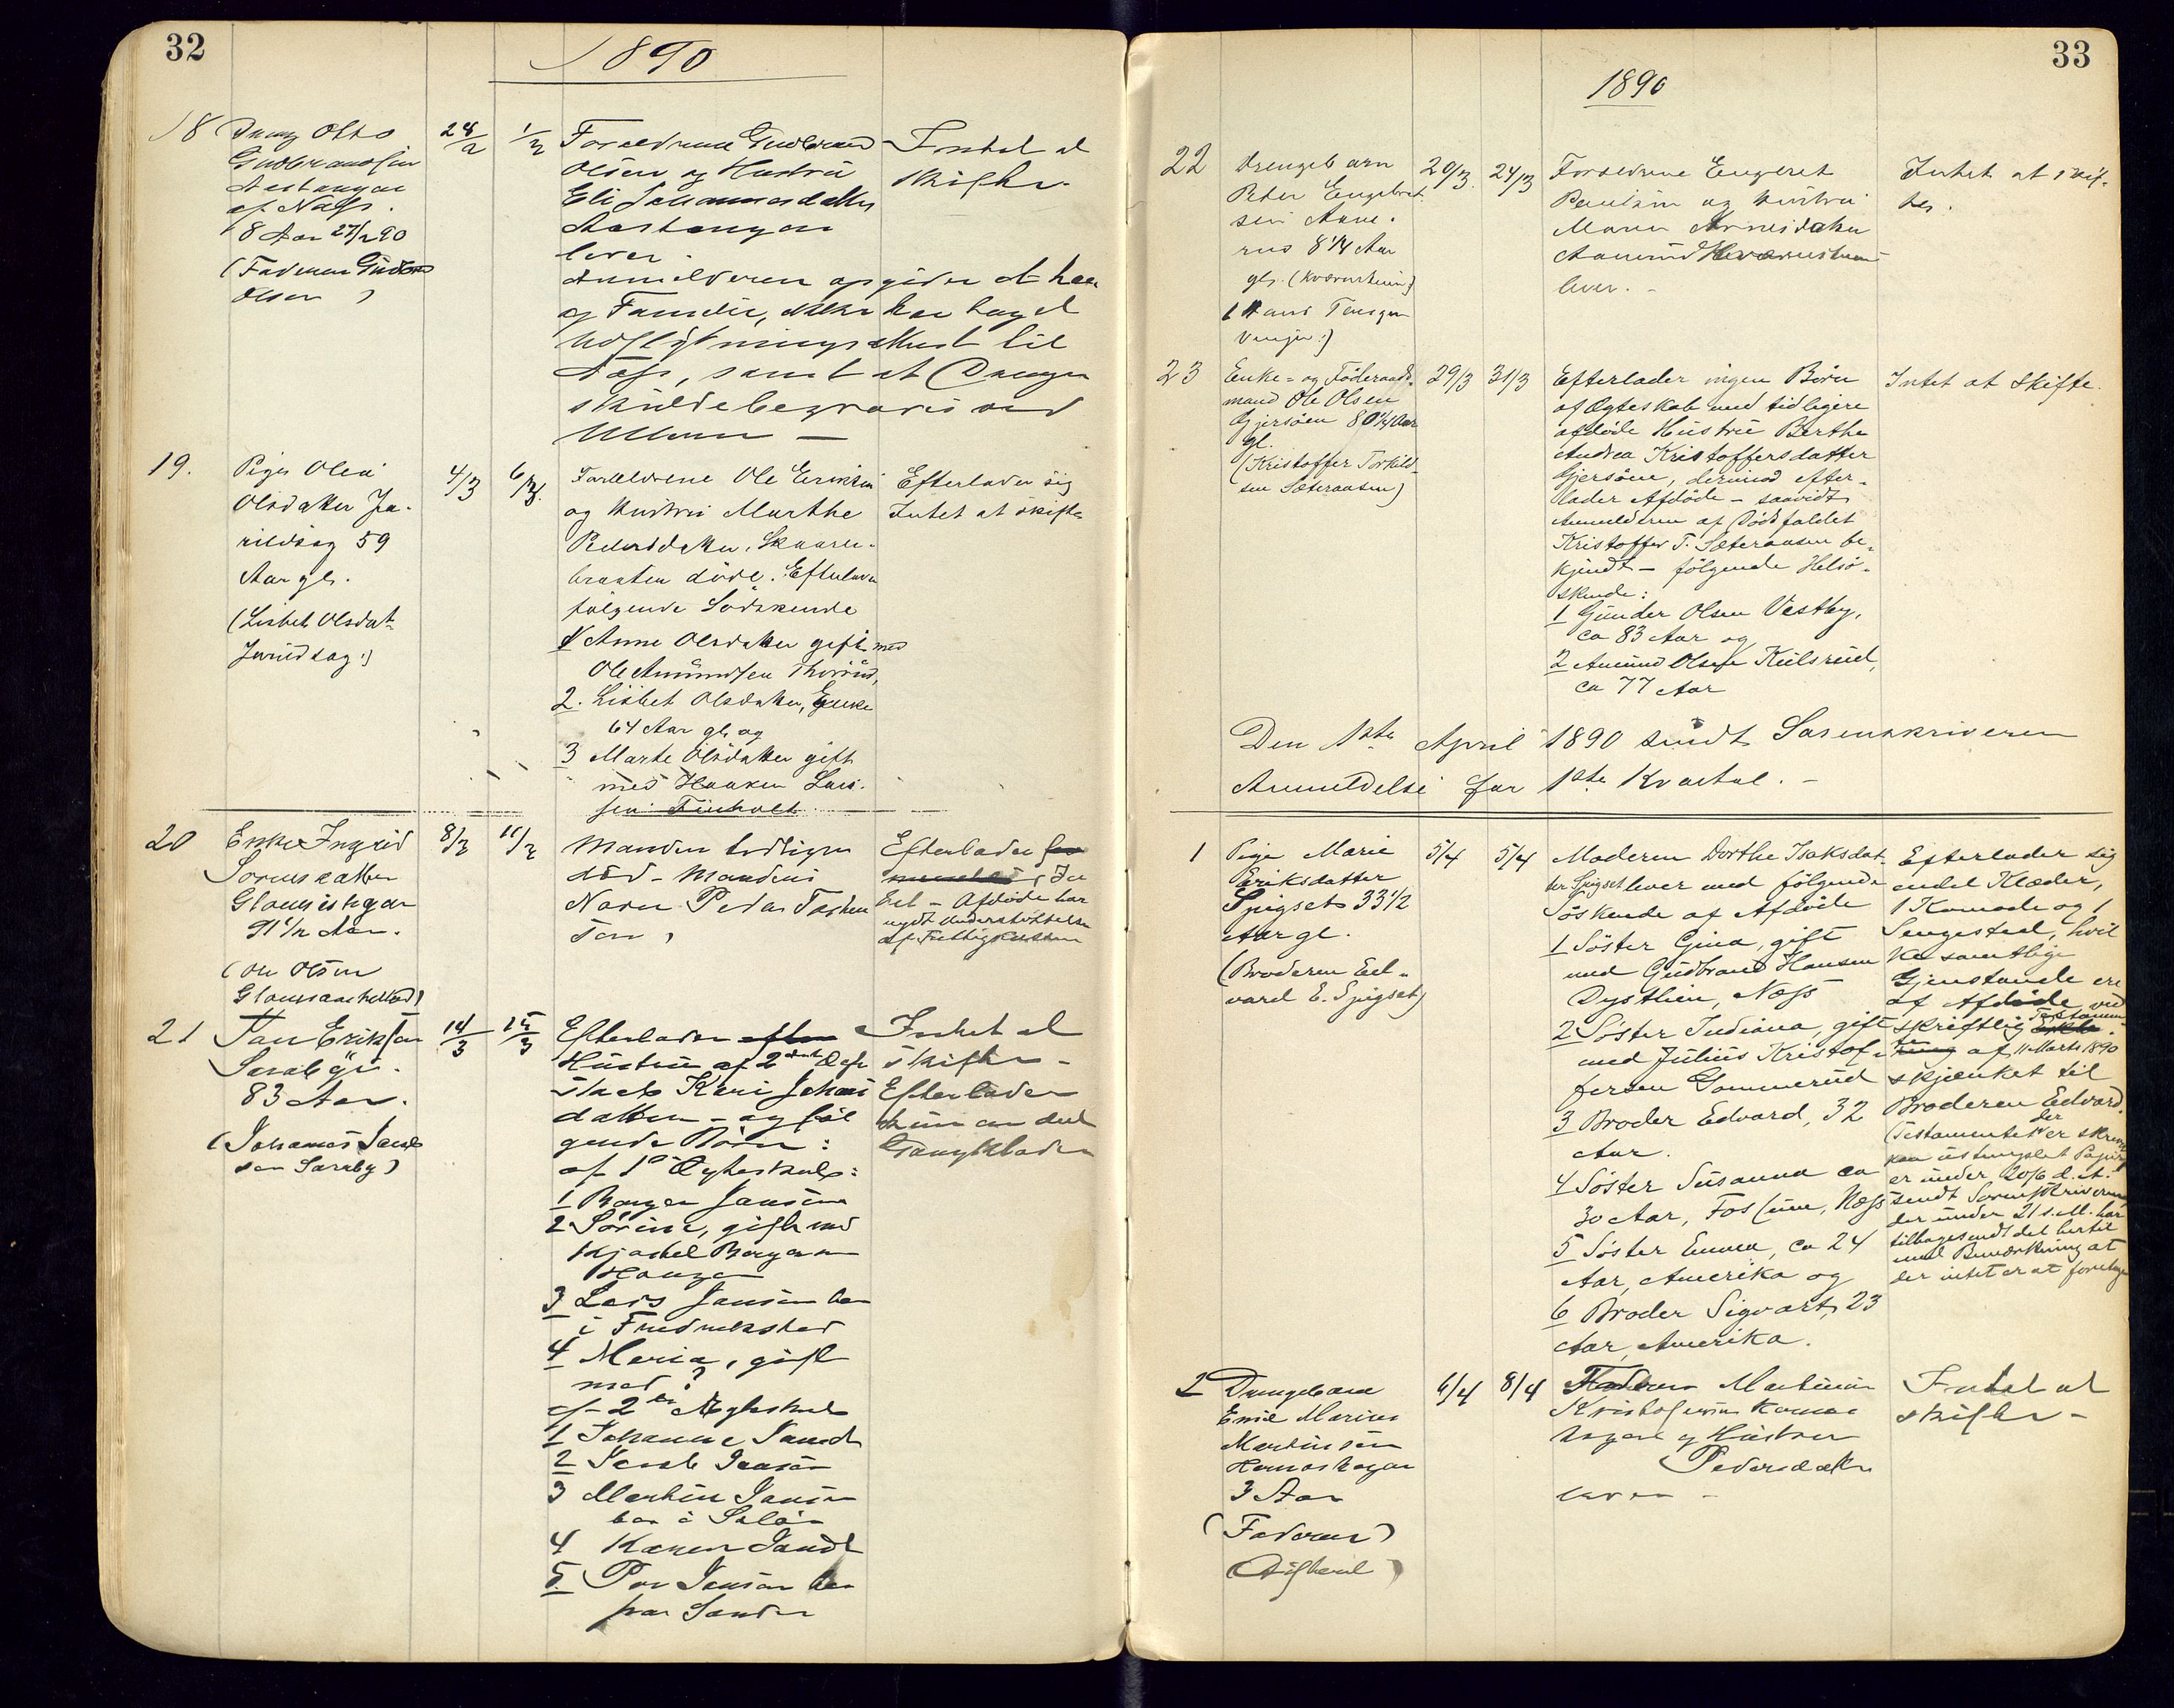 32
1890
18 Dreng Otto
Gudbrandsen
Aastangen
af Næss.
8 Aar 27/2 90
(Faderen Gudbr
Olsen)
28/2
1/3
Forældrene Gudbrand
Olsen og Hustru
Eli Johannesdatter
Aastangen
lever.
Anmelderen opgiver at han
og Familie, ikke har taget
Udflytningsattest til
Næss, samt at Drengen
skulde begraves ved
Ullern —
Intet at
skifte.
19.
Pige Olea
Olsdatter Ja-
rildsag 59
Aar gl.
(Lisbet Olsdat-
Jarildsag:)
4/3
6/3.
Forældrene Ole Eriksen
og Hustru Marthe
Pedersdatter, Skaare-
braaten døde. Efterlader
følgende Sødskende
1 Anne Olsdatter gift med
Ole Amundsen Thorrud,
2. Lisbet Olsdatter, Enke
64 Aar gl. og
3 Marte Olsdatter gift
med Haaken Lars-
sen Finholt
Efterlader sig
Intet at skifte
20
Enke Ingrid
Sørensdatter
Glomshagen
91 1/2 Aar.
(Ole Olsen
8/3
11/3
Manden tidligere
død - Mandens
Navn Peder
Efterlader
Afdøde har
nydt Understøttelse
af Fattigkassen
21
Jan Eriksen
Saraby
83 Aar.
(Johannes Jan
sen Saraby)
14/3
15/3
Efterlader
Hustru af 2det Ægte
skab Kari Johans
datter - og føl
gende Børn:
af 1ste Ægteskab:
1 Borger Jansen
2 Sørine, gift med
Kjostel Borgersen
Haugen
3 Lars Jansen bor
i Fredrikstad
4 Maria, gift
med?
af 2det Ægteskab
1 Johanne Jansd
2 Jacob Jansen
3 Martin Jansen
bor i Soløer
4 Karen Jansd
5. Per Jansen bor
paa Sander
Intet at
skifte -
Efterlader
kun en del
Gangklæder
33
1890
22
Drengebarn
Peter Engebret
sen Aane-
rud 8 1/4 Aar
gl. (Kværnstuen)
(Hans Tangen
Vinger:)
20/3.
24/3
Forældrene Engebret
Paulsen og Hustru
Maren Arnesdatter
Aanerud Kværnstuen
lever. -
Intet at skif-
tes.
23
Enke- og Föderaads-
mand Ole Olsen
Gjersöen 80 1/4 Aar
gl.
(Kristoffer Torkild-
sen Sæteraasen)
29/3
31/3
Efterlader ingen Börn
af Ægteskab med tidligere
afdöde Hustru Berthe
Andrea Kristoffersdatter
Gjersöen, derimod efter-
lader Afdöde - saavidt
Anmelderen af Dödsfaldet
Kristoffer T. Sæteraasen be-
kjendt - fölgende Helsö-
skende:
1 Gunder Olsen Vestby,
ca 83 Aar og
2 Amund Olsen Kulsrud,
ca 77 Aar
Intet at skifte.
Den 1ste April 1890 sendt Sorenskriveren
Anmeldelse for 1ste Kvartal. -
1
Pige Marie
Eriksdatter
Spigset 33 1/2
Aar gl.
(Broderen Ed-
vard E. Spigset)
5/4
5/4
Moderen Dorthe Isaksdat-
ter Spigset lever med fölgende
Söskende af Afdöde
1 Söster Gina, gift
med Gudbrand Hansen
Dysthien, Næss
2 Söster Indiana, gift
med Julius Kristof-
fersen Gommerud
3 Broder Edvard, 32
Aar.
4 Söster Susanna ca
30 Aar, Fossum, Næss
5 Söster Emma, ca 24
Aar, Amerika og
6 Broder Sigvart, 23
Aar, Amerika.
Efterlader sig
endel Klæder,
1 Komode og 1
Sengested, hvil
ke samtlige
Gjenstande ere
af Afdöde ved
skriftlig Testamen
te af 11 Marts 1890
skjænket til
Broderen Edvard.
(Testamentet der er skrevet
paa ustemplet Papir
er under 20/6 d. A.
sendt Sorenskriveren,
der under 21 s. M. har
tilbagesendt det hertil
med Bemærkning at
der intet er at foretage
2
Drengebarn
Emil Marius
Martinsen
Kornaskogen
3 Aar
(Faderen)
6/4
8/4
Faderen Martinus
Kristofersen
og Hustru
Pedersdatter
lever -
Intet at
skifte -